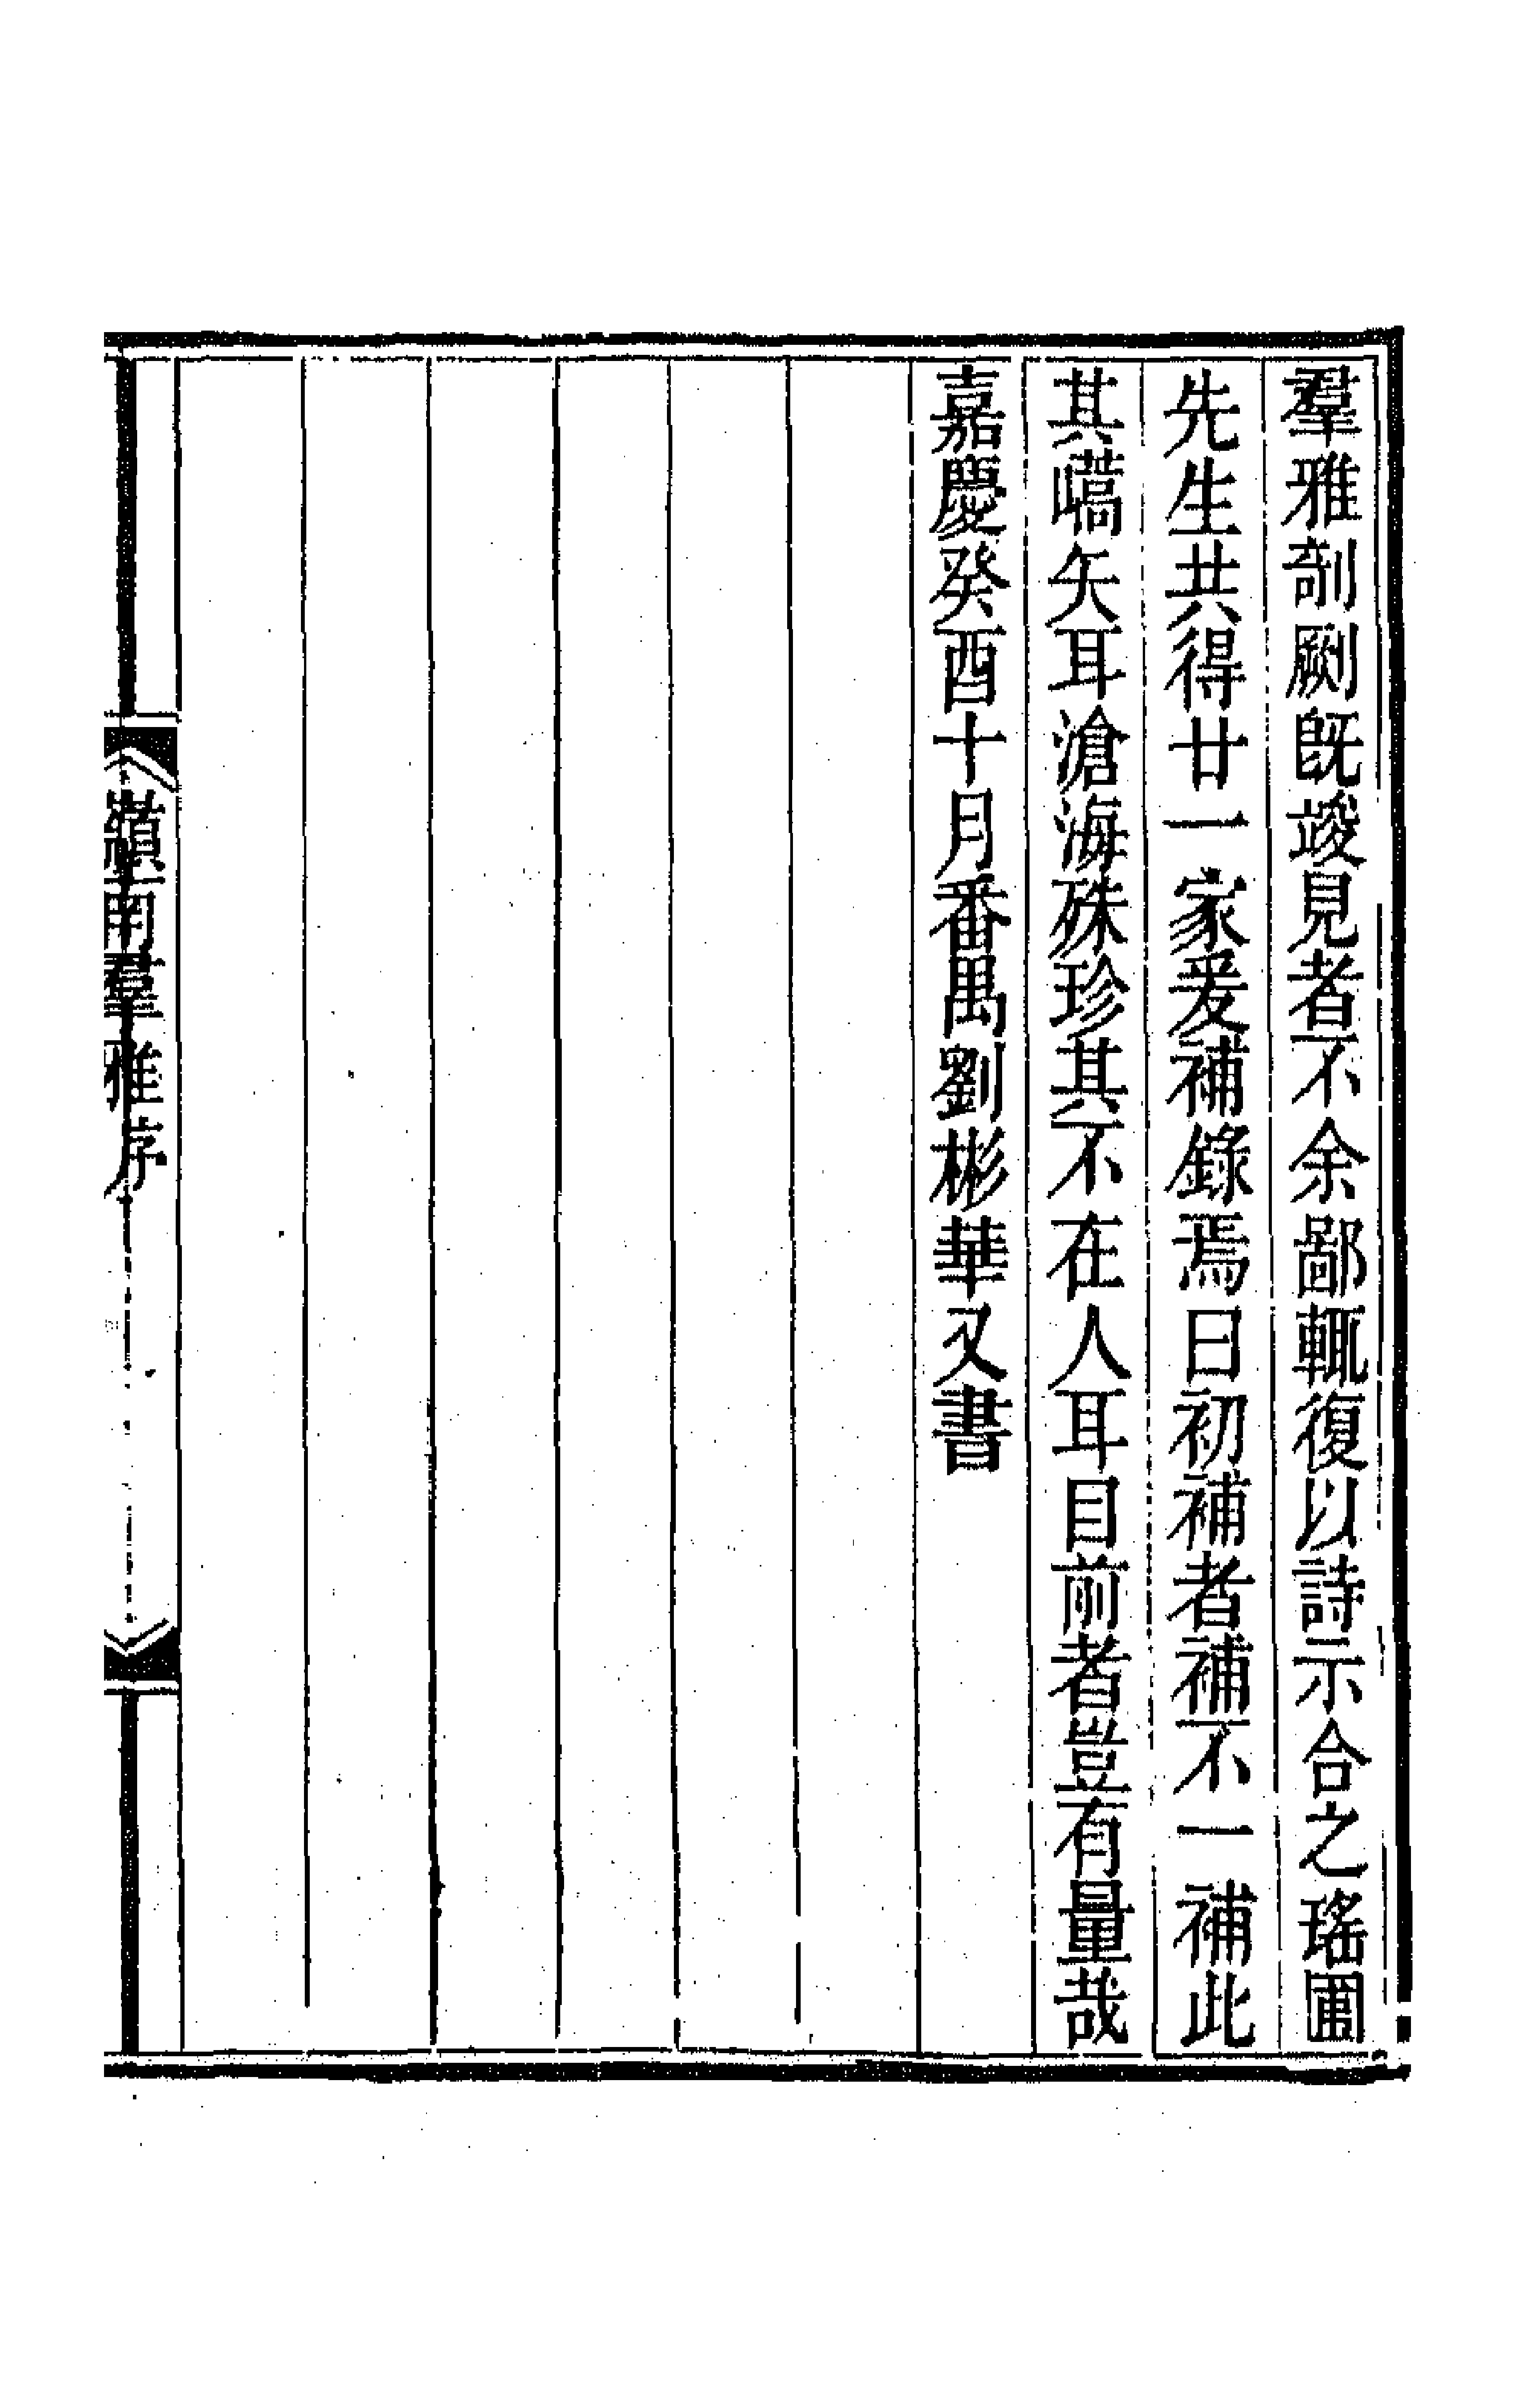 羣雅剞劂既竣見者不余鄙輒復以詩示合之瑤圃
先生共得廿一家爰補錄焉曰初補者補不一補此
其嚆矢耳滄海殊珍其不在人耳目前者豈有量哉
嘉慶癸酉十月番禺劉彬華又書
嶺南羣雅序